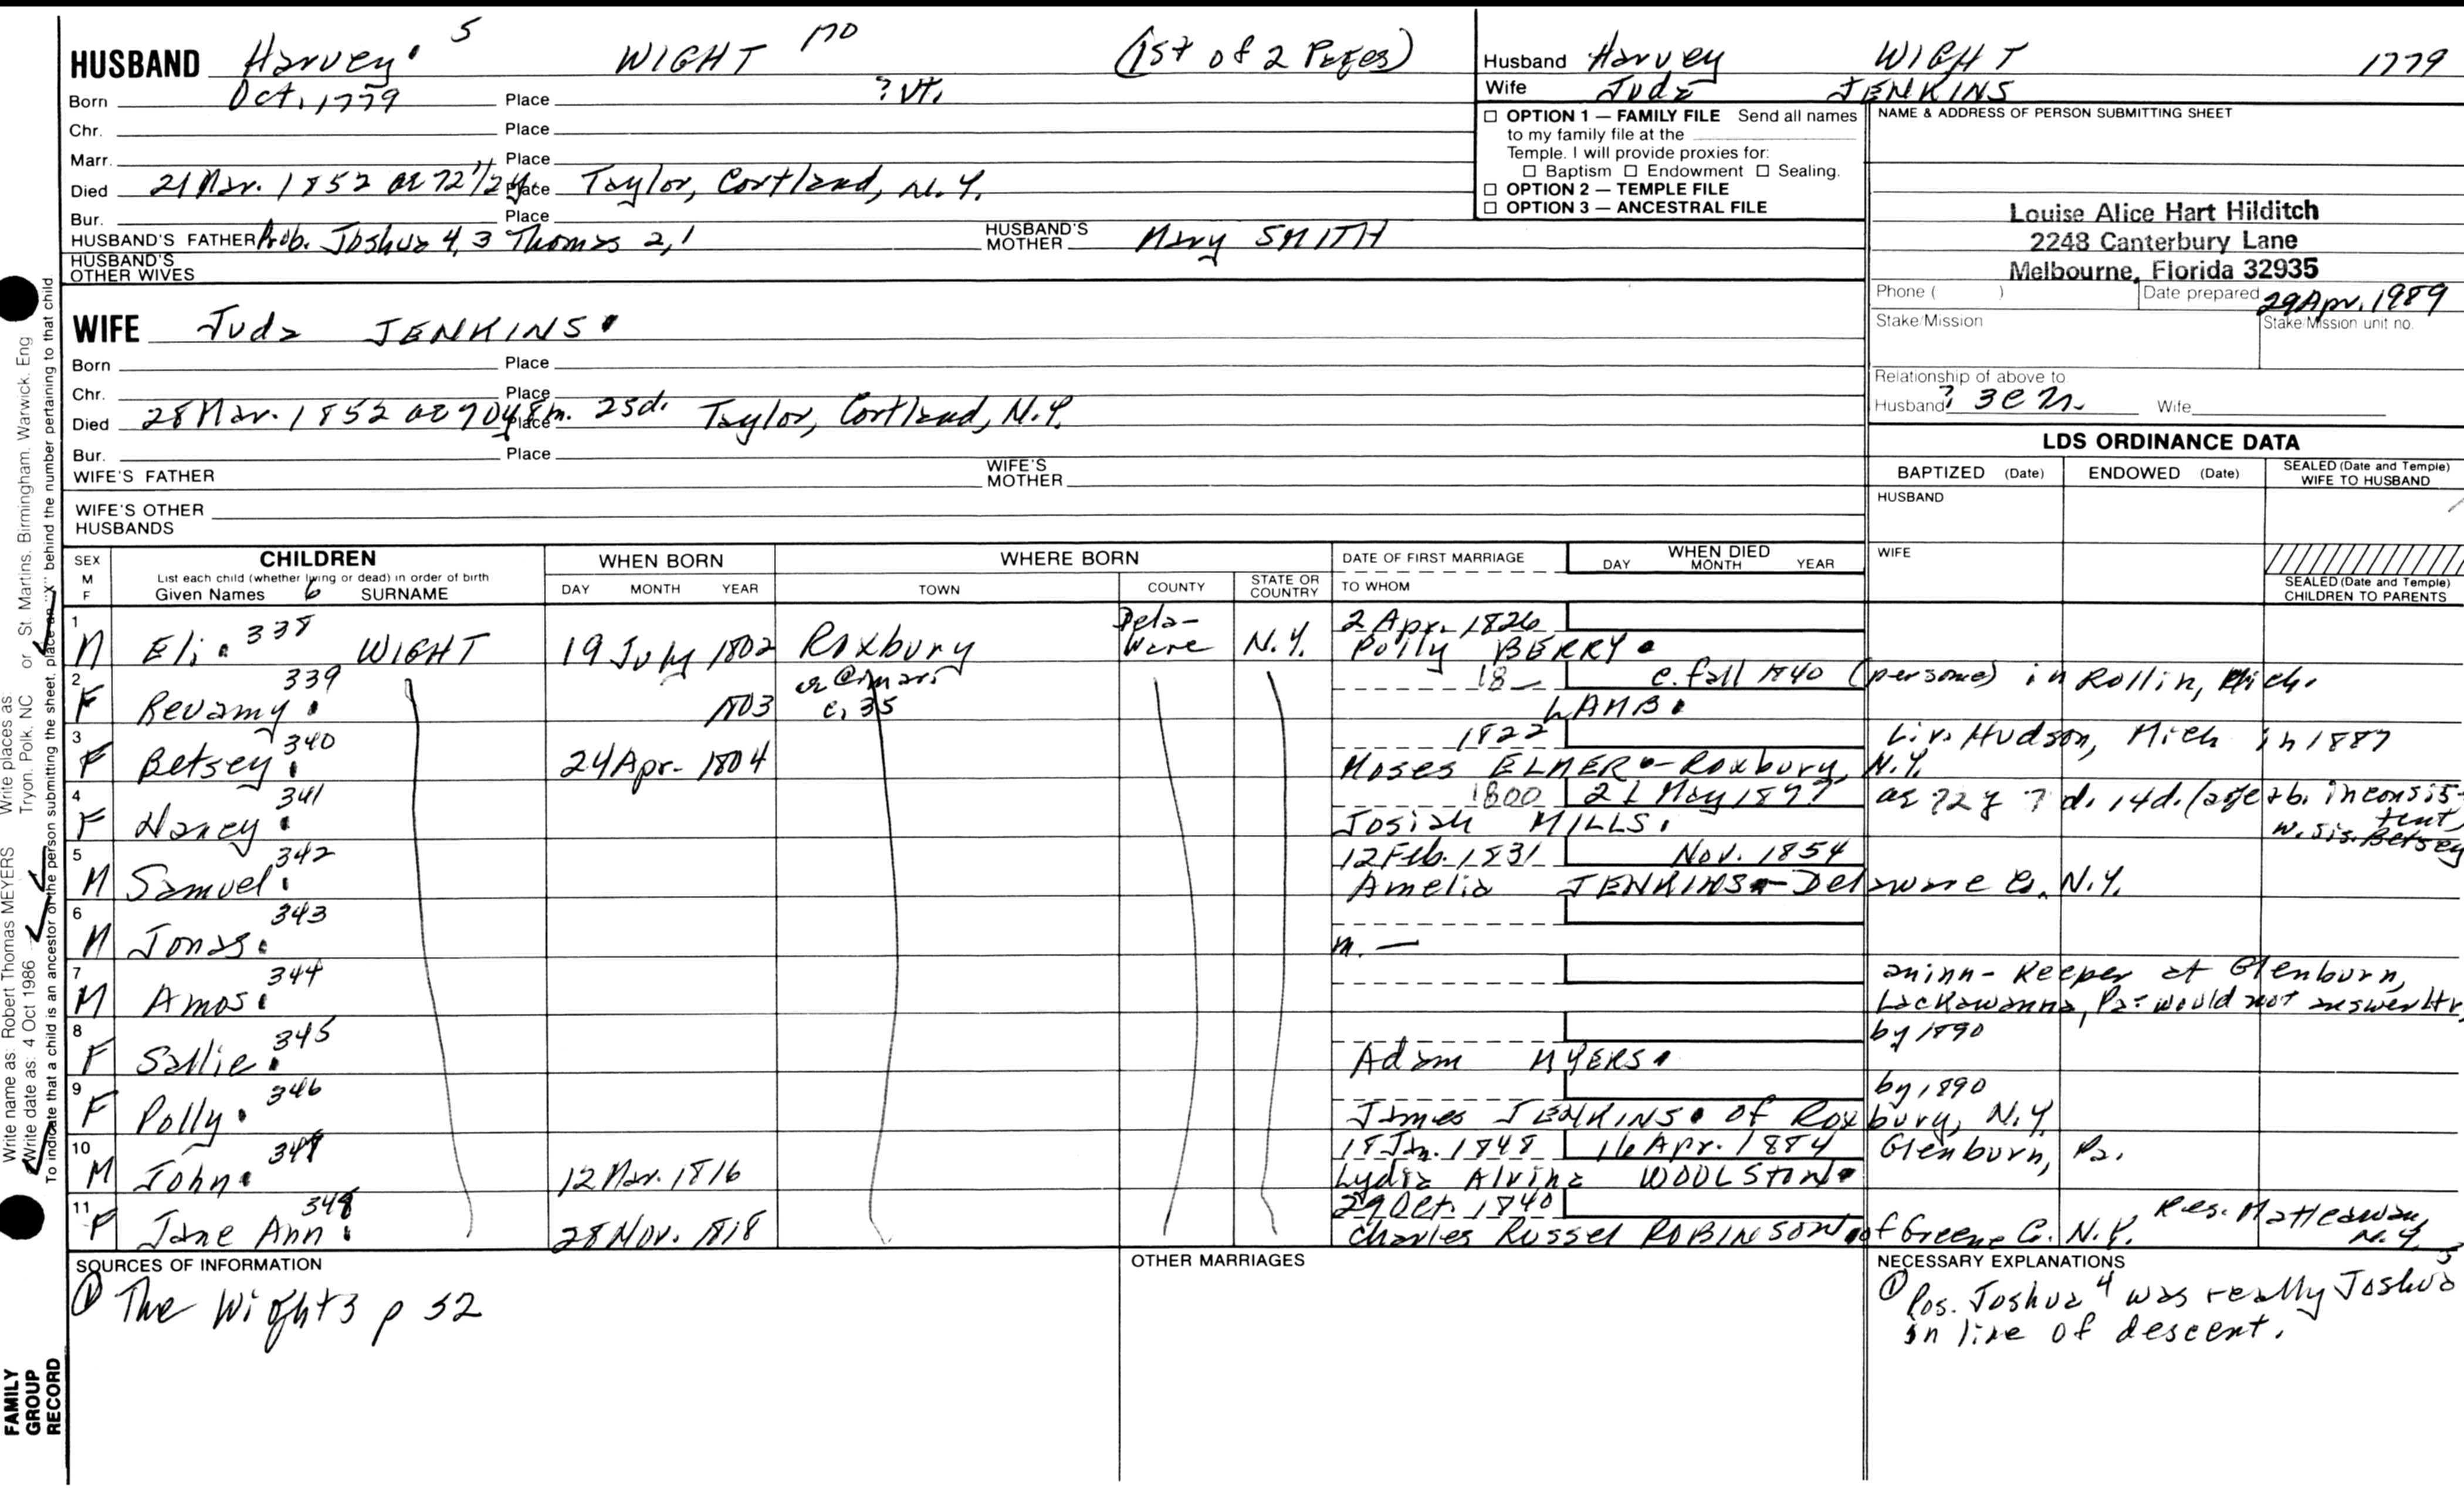 HUSBAND Harvey 5 WIGHT 170 (1st of 2 Pages)
Born Oct. 1779 Place ? Vt.
Chr. Place
Marr. Place
Died 21 Mar. 1852 ae 72 1/2 y Place Taylor, Cortland, N.Y.
Bur. Place
HUSBAND'S FATHER Prob. Joshua 4, 3 Thomas 2, 1 HUSBAND'S MOTHER Mary SMITH
HUSBAND'S OTHER WIVES
WIFE Juda JENKINS
Born Place
Chr. Place
Died 28 Mar. 1852 ae 70y 8m. 25d. Place Taylor, Cortland, N.Y.
Bur. Place
WIFE'S FATHER WIFE'S MOTHER
WIFE'S OTHER HUSBANDS
Husband Harvey WIGHT 1779
Wife Juda JENKINS
☐ OPTION 1 — FAMILY FILE Send all names
to my family file at the
Temple. I will provide proxies for:
☐ Baptism ☐ Endowment ☐ Sealing.
☐ OPTION 2 — TEMPLE FILE
☐ OPTION 3 — ANCESTRAL FILE
NAME & ADDRESS OF PERSON SUBMITTING SHEET
Louise Alice Hart Hilditch
2248 Canterbury Lane
Melbourne, Florida 32935
Phone ( ) Date prepared 29 Apr. 1989
Stake/Mission Stake/Mission unit no.
Relationship of above to
Husband ? 3C Wife
LDS ORDINANCE DATA
BAPTIZED (Date) ENDOWED (Date) SEALED (Date and Temple) WIFE TO HUSBAND
HUSBAND
WIFE
SEALED (Date and Temple)
CHILDREN TO PARENTS
SEX M F CHILDREN WHEN BORN WHERE BORN DATE OF FIRST MARRIAGE WHEN DIED
List each child (whether living or dead) in order of birth
Given Names 6 SURNAME DAY MONTH YEAR TOWN COUNTY STATE OR COUNTRY TO WHOM DAY MONTH YEAR
1 M Eli 338 WIGHT 19 July 1802 Roxbury Delaware N.Y. 2 Apr. 1826
Polly BERRY
2 F Revamy 339 1803 c. 35 18— c. fall 1840 in Rollin, Mich.
LAMB
3 F Betsey 340 24 Apr. 1804 1822 Liv. Hudson, Mich in 1887
Moses ELMER - Roxbury, N.Y.
4 F Nancy 341 1800 21 May 1877 ae 72 y 7 d. 14d. (age & b. inconsistent w. sis. Betsey
Josiah MILLS
5 M Samuel 342 12 Feb. 1831 Nov. 1854
Amelia JENKINS - Delaware Co. N.Y.
6 M Jonas 343
m. —
7 M Amos 344 an inn-keeper at Glenburn,
Lackawanna, Pa. would not answer ltr.
8 F Sallie 345 by 1890
Adam MYERS
9 F Polly 346 by 1890
James JENKINS of Roxbury, N.Y.
10 M John 347 12 Mar. 1816 18 Jan. 1848 16 Apr. 1884 Glenburn, Pa.
Lydia Alvina WOOLSTON
11 F Jane Ann 348 28 Nov. 1818 29 Oct. 1840 Res. Matteawan, N.Y.
Charles Russel ROBINSON of Greene C. N.Y.
SOURCES OF INFORMATION OTHER MARRIAGES NECESSARY EXPLANATIONS
① The Wights p 52
① Pos. Joshua 4 was really Joshua 3
in line of descent.
Write name as: Robert Thomas MEYERS Write places as: Tryon, Polk, NC or St. Martins, Birmingham, Warwick, Eng
Write date as: 4 Oct 1986
To indicate that a child is an ancestor of the person submitting the sheet, place an "X" behind the number pertaining to that child
FAMILY
GROUP
RECORD